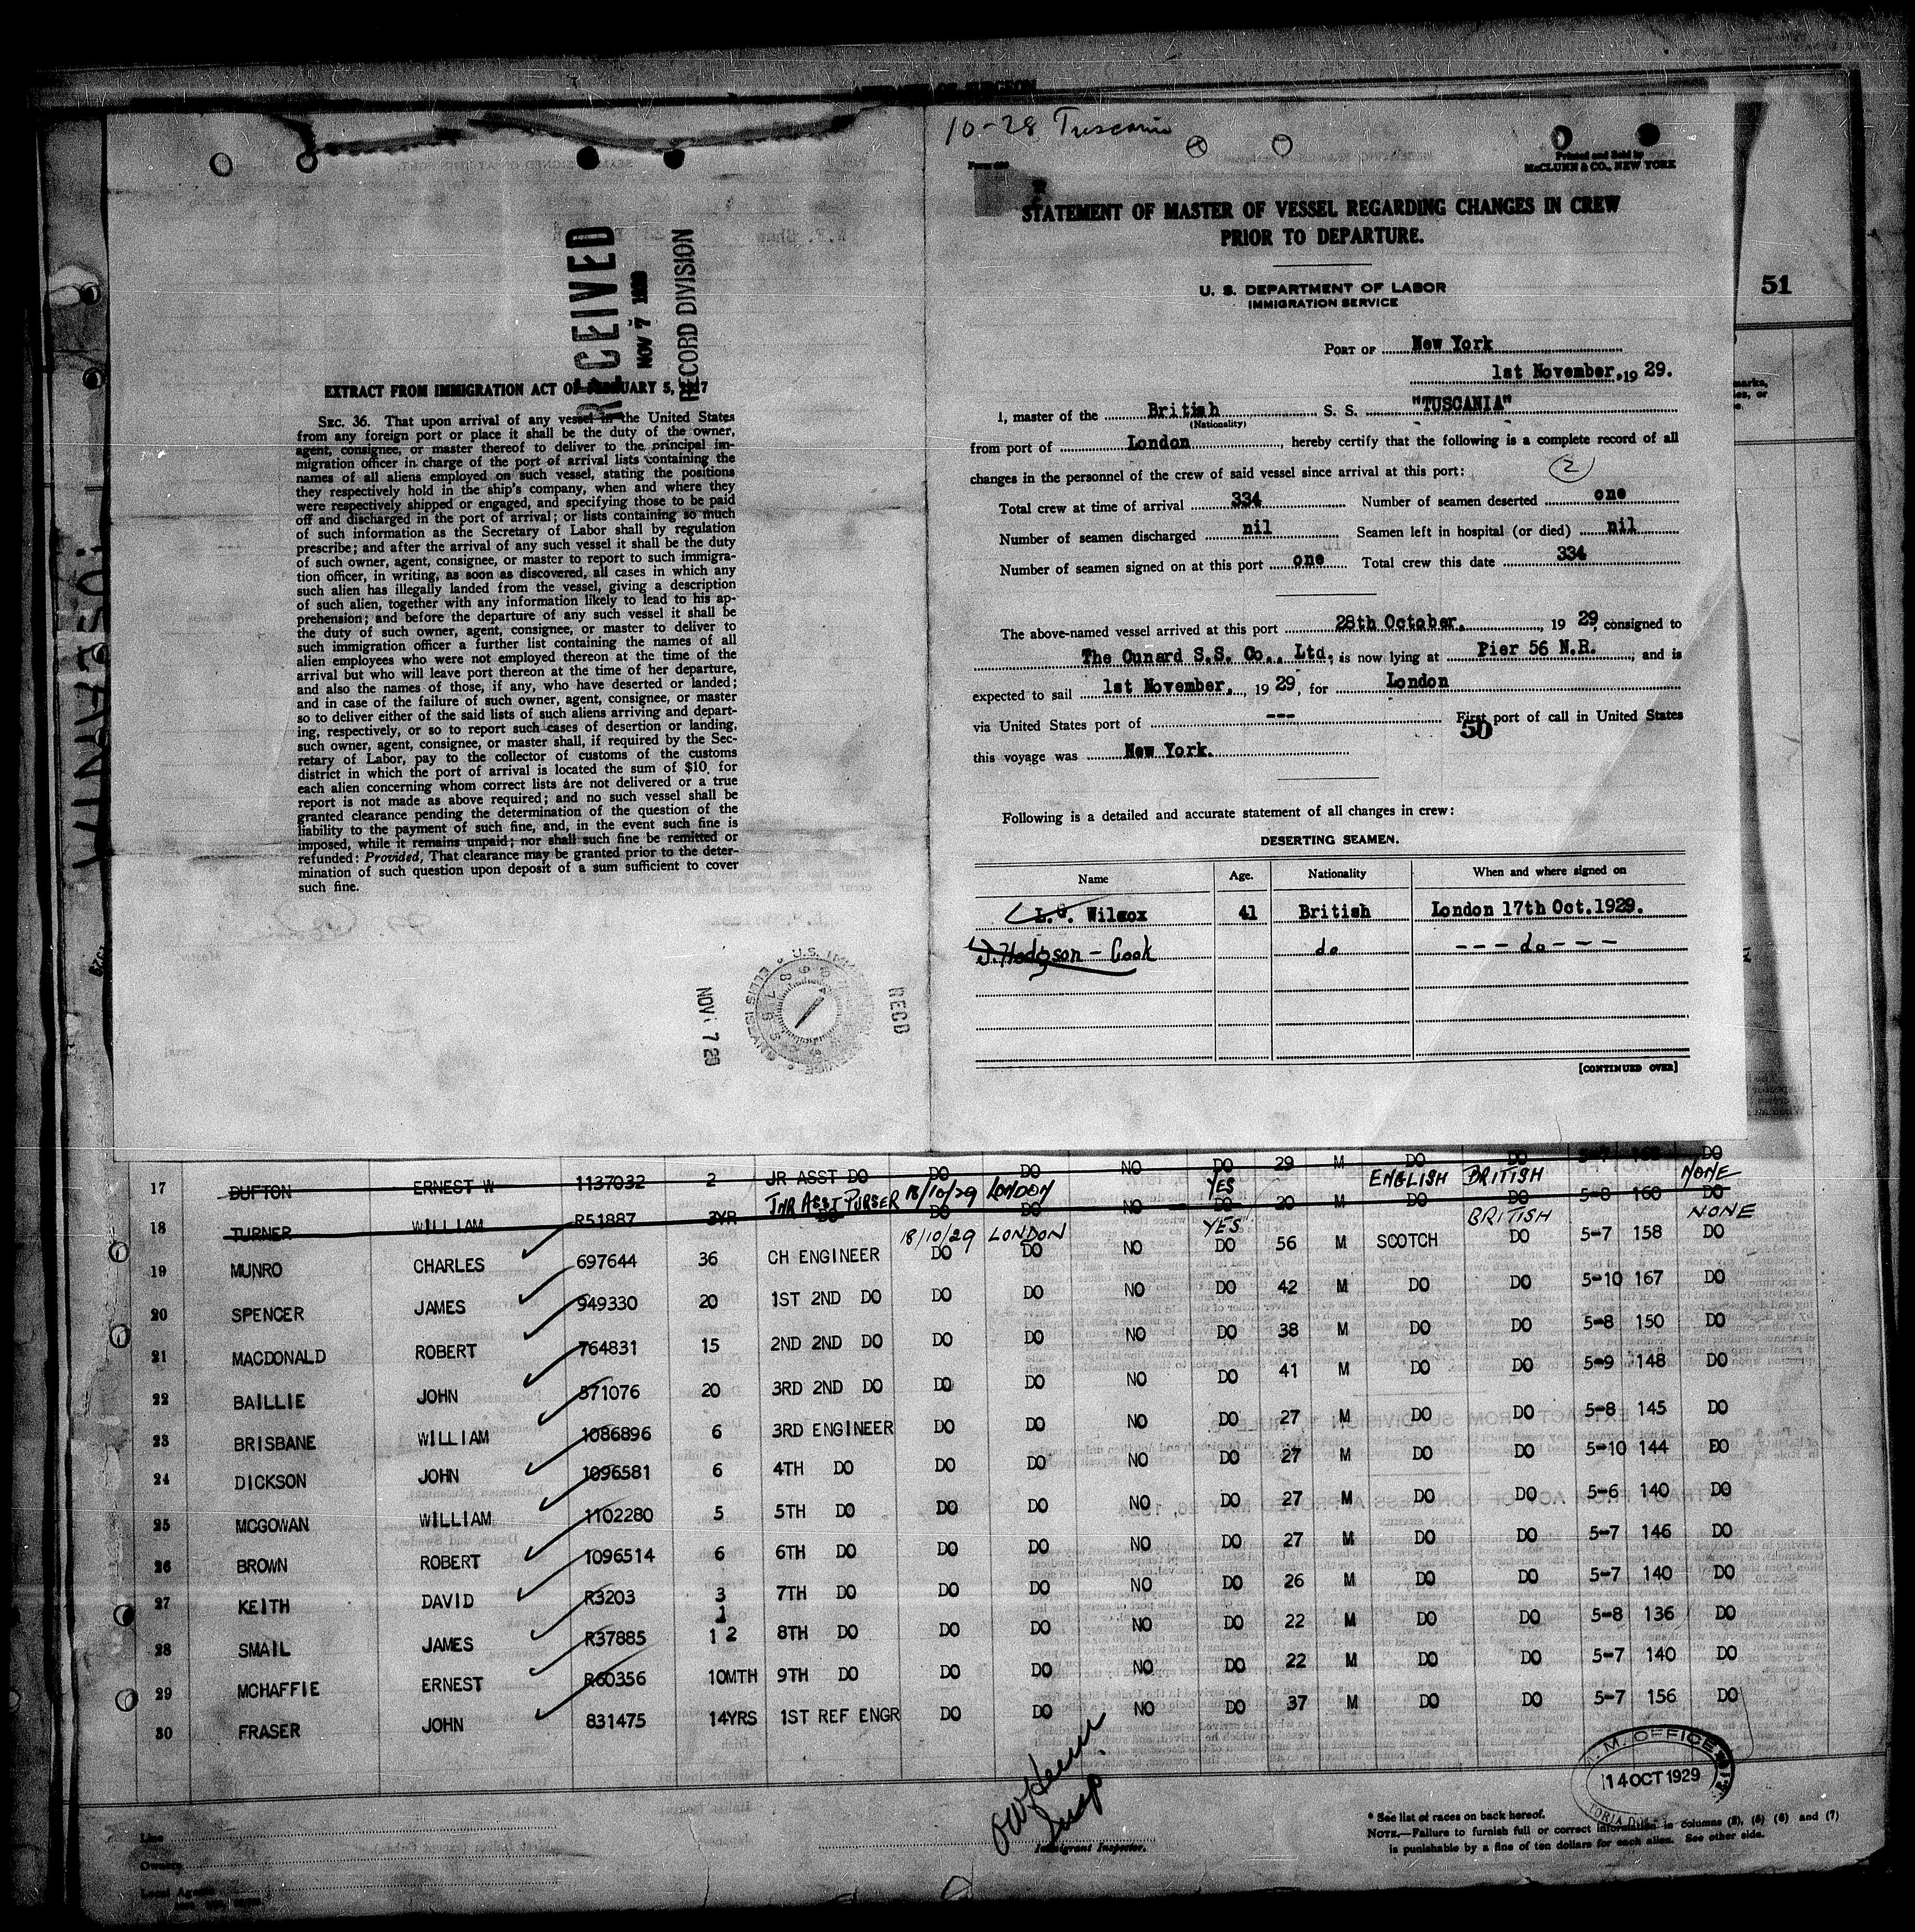 10-28 Tuscania
Printed and Sold by
McCLUNN & CO., NEW YORK
STATEMENT OF MASTER OF VESSEL REGARDING CHANGES IN CREW
PRIOR TO DEPARTURE.
U. S. DEPARTMENT OF LABOR
IMMIGRATION SERVICE
51
PORT OF New York
1st November, 19 29.
I, master of the British S. S. "TUSCANIA"
(Nationality)
from port of London, hereby certify that the following is a complete record of all
changes in the personnel of the crew of said vessel since arrival at this port: 2
Total crew at time of arrival 334 Number of seamen deserted one
Number of seamen discharged nil Seamen left in hospital (or died) nil
Number of seamen signed on at this port one Total crew this date 334
The above-named vessel arrived at this port 28th October, 19 29, consigned to
The Cunard S.S. Co., Ltd, is now lying at Pier 56 N.R., and is
expected to sail 1st November, 19 29, for London
via United States port of --- First port of call in United States
50
this voyage was New York.
Following is a detailed and accurate statement of all changes in crew:
DESERTING SEAMEN.
Name Age. Nationality When and where signed on
L. G. Wilcox 41 British London 17th Oct. 1929.
J. Hodgson - Cook do ---do---
[CONTINUED OVER]
RECEIVED
NOV 7 1929
RECORD DIVISION
EXTRACT FROM IMMIGRATION ACT OF FEBRUARY 5, 1917
SEC. 36. That upon arrival of any vessel in the United States
from any foreign port or place it shall be the duty of the owner,
agent, consignee, or master thereof to deliver to the principal im-
migration officer in charge of the port of arrival lists containing the
names of all aliens employed on such vessel, stating the positions
they respectively hold in the ship's company, when and where they
were respectively shipped or engaged, and specifying those to be paid
off and discharged in the port of arrival; or lists containing so much
of such information as the Secretary of Labor shall by regulation
prescribe; and after the arrival of any such vessel it shall be the duty
of such owner, agent, consignee, or master to report to such immigra-
tion officer, in writing, as soon as discovered, all cases in which any
such alien has illegally landed from the vessel, giving a description
of such alien, together with any information likely to lead to his ap-
prehension; and before the departure of any such vessel it shall be
the duty of such owner, agent, consignee, or master to deliver to
such immigration officer a further list containing the names of all
alien employees who were not employed thereon at the time of the
arrival but who will leave port thereon at the time of her departure,
and also the names of those, if any, who have deserted or landed;
and in case of the failure of such owner, agent, consignee, or master
so to deliver either of the said lists of such aliens arriving and depart-
ing, respectively, or so to report such cases of desertion or landing,
such owner, agent, consignee, or master shall, if required by the Sec-
retary of Labor, pay to the collector of customs of the customs
district in which the port of arrival is located the sum of $10 for
each alien concerning whom correct lists are not delivered or a true
report is not made as above required; and no such vessel shall be
granted clearance pending the determination of the question of the
liability to the payment of such fine, and, in the event such fine is
imposed, while it remains unpaid; nor shall such fine be remitted or
refunded: Provided, That clearance may be granted prior to the deter-
mination of such question upon deposit of a sum sufficient to cover
such fine.
NOV 7 29
RECD
17 DUFTON ERNEST W 1137032 2 JR ASST DO DO DO NO DO 29 M DO DO 5-7 DO
JNR ASST PURSER 18/10/29 LONDON YES ENGLISH BRITISH NONE
18 TURNER WILLIAM R51887 3YR DO DO DO NO DO 20 M DO DO 5-8 160 DO
18/10/29 LONDON YES BRITISH NONE
19 MUNRO CHARLES 697644 36 CH ENGINEER DO DO NO DO 56 M SCOTCH DO 5-7 158 DO
20 SPENCER JAMES 949330 20 1ST 2ND DO DO DO NO DO 42 M DO DO 5-10 167 DO
21 MACDONALD ROBERT 764831 15 2ND 2ND DO DO DO NO DO 38 M DO DO 5-8 150 DO
22 BAILLIE JOHN 571076 20 3RD 2ND DO DO DO NO DO 41 M DO DO 5-9 148 DO
23 BRISBANE WILLIAM 1086896 6 3RD ENGINEER DO DO NO DO 27 M DO DO 5-8 145 DO
24 DICKSON JOHN 1096581 6 4TH DO DO DO NO DO 27 M DO DO 5-10 144 DO
25 MCGOWAN WILLIAM 1102280 5 5TH DO DO DO NO DO 27 M DO DO 5-6 140 DO
26 BROWN ROBERT 1096514 6 6TH DO DO DO NO DO 27 M DO DO 5-7 146 DO
27 KEITH DAVID R3203 3 7TH DO DO DO NO DO 26 M DO DO 5-7 140 DO
28 SMAIL JAMES R37885 1 1 2 8TH DO DO DO NO DO 22 M DO DO 5-8 136 DO
29 MCHAFFIE ERNEST R60356 10MTH 9TH DO DO DO NO DO 22 M DO DO 5-7 140 DO
30 FRASER JOHN 831475 14YRS 1ST REF ENGR DO DO NO DO 37 M DO DO 5-7 156 DO
Insp.
Immigrant Inspector.
M. OFFICE
14 OCT 1929
Line
Owners
Local Agents
* See list of races on back hereof.
NOTE.—Failure to furnish full or correct information in columns (2), (5) (6) and (7)
is punishable by a fine of ten dollars for each alien. See other side.